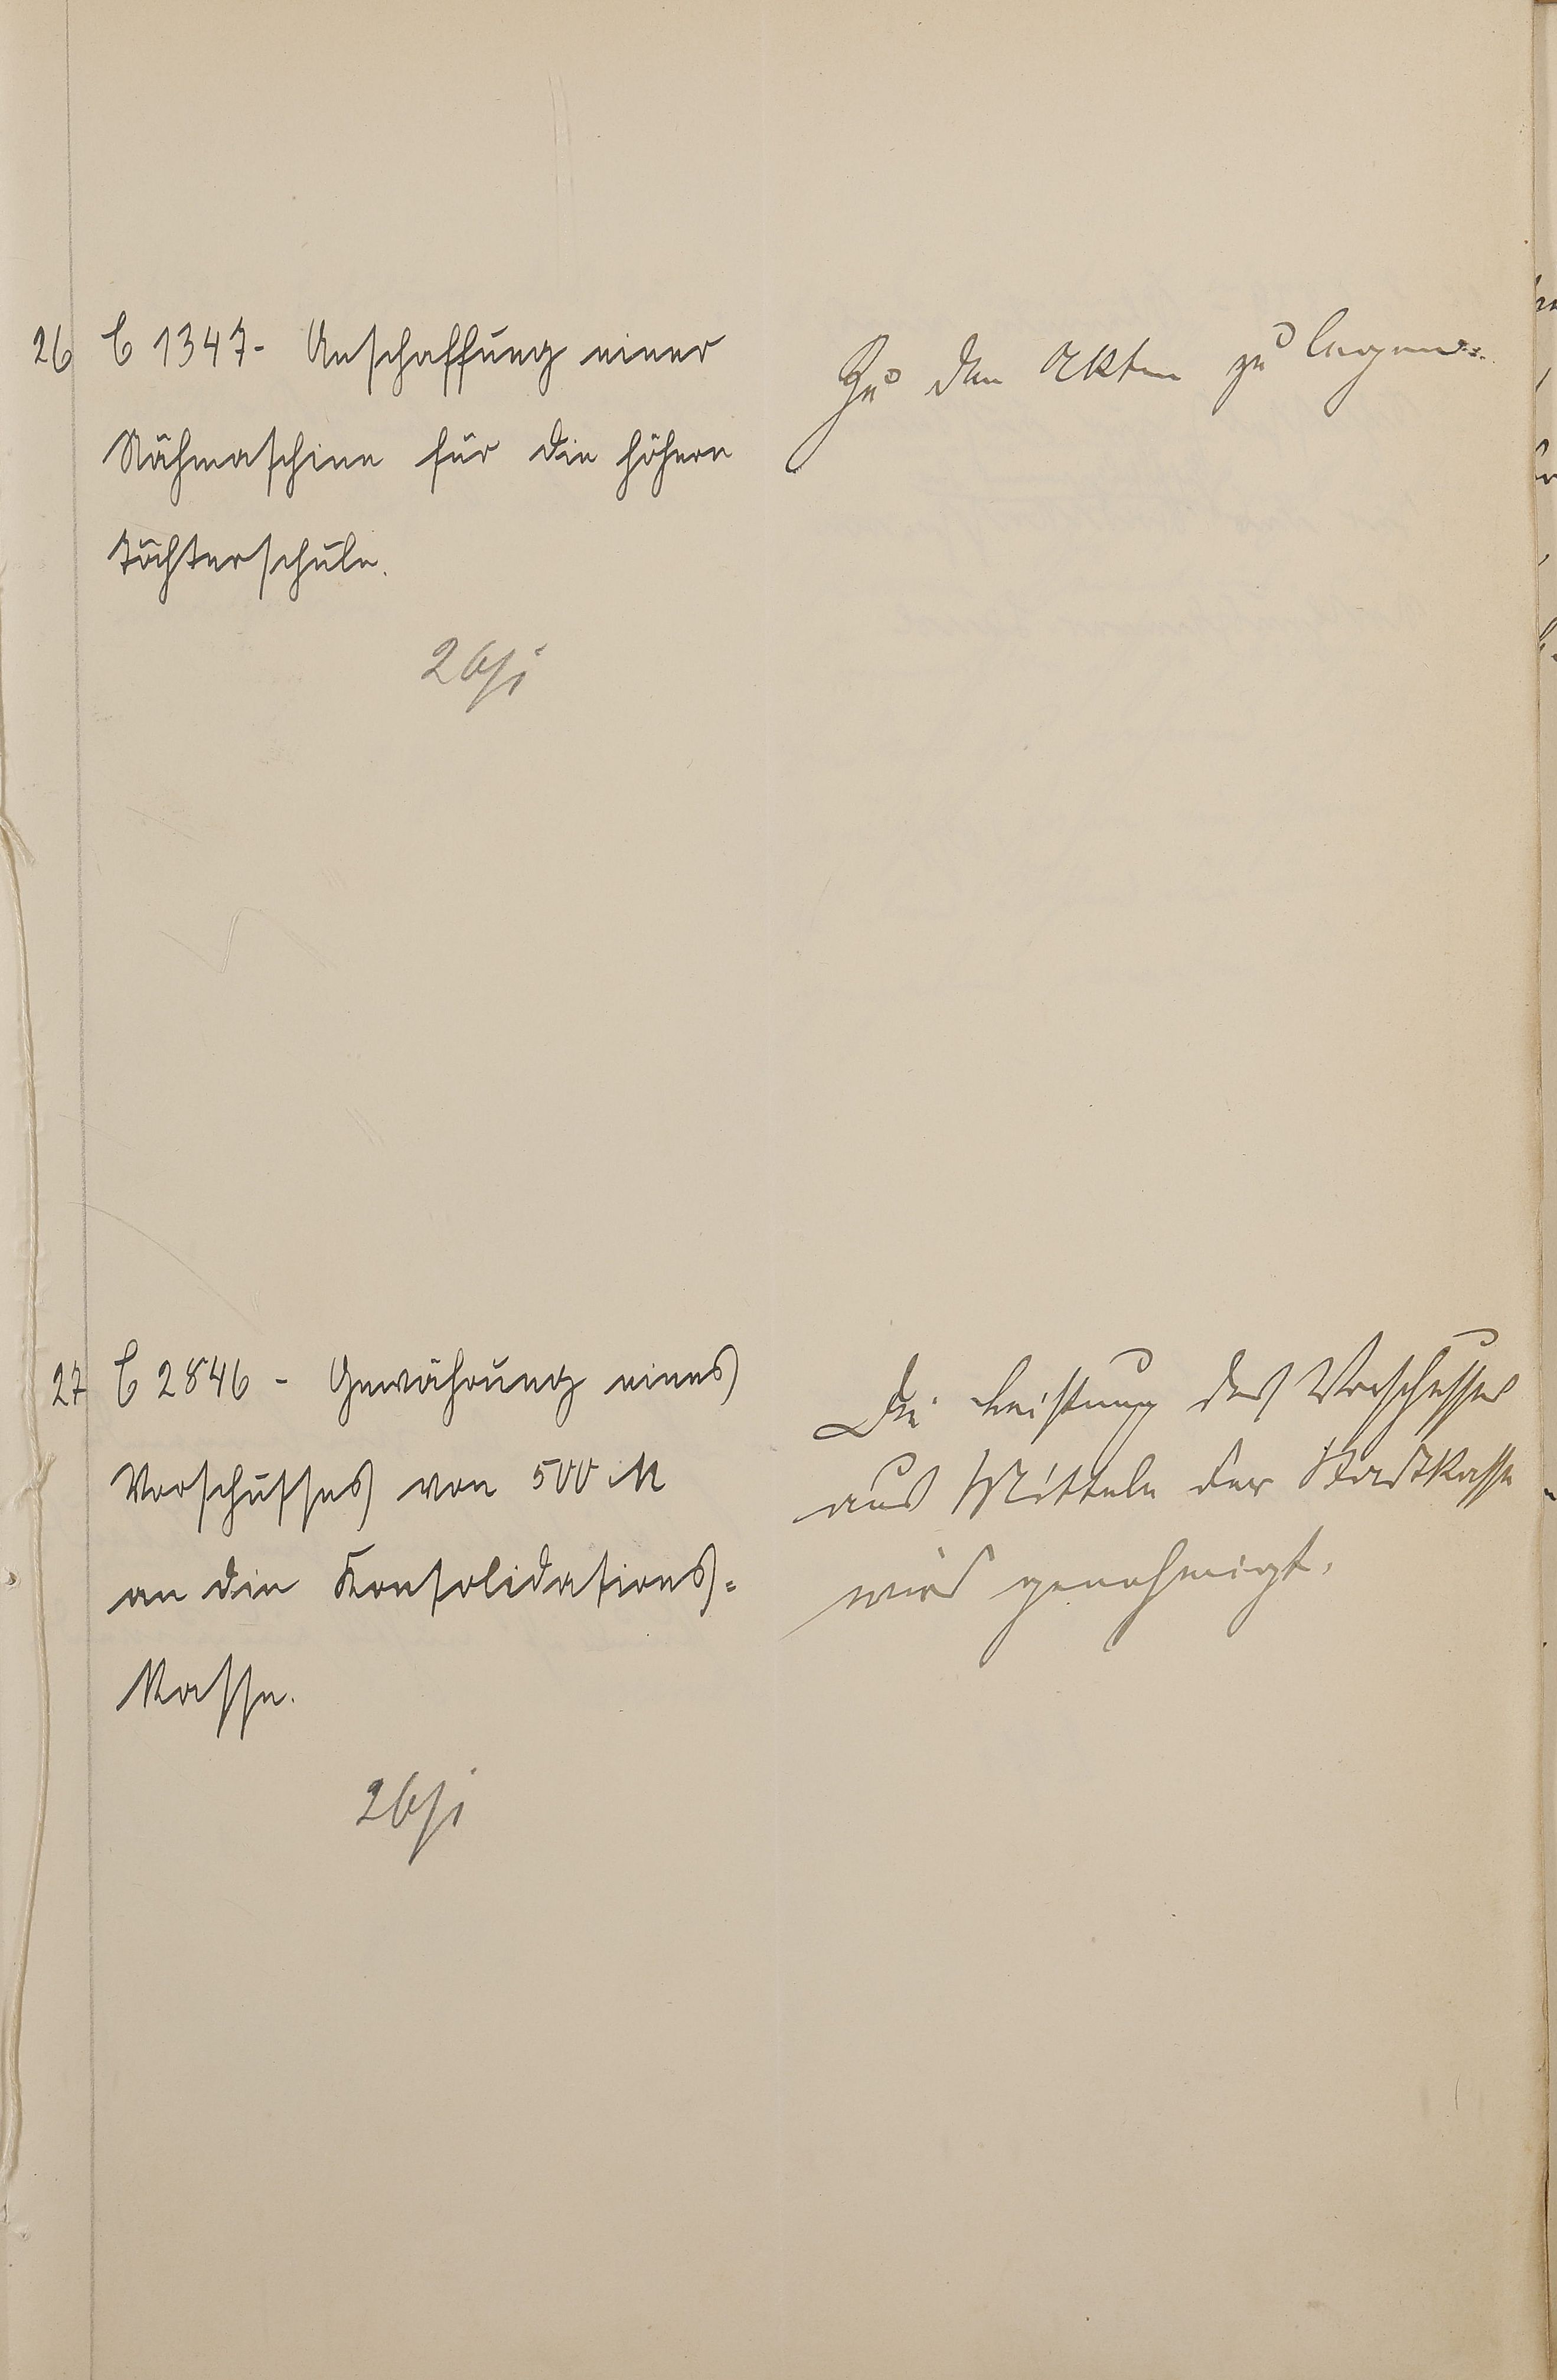 26 C 1347 - Anschaffung einer
Nähmaschine für die höhere
Töchterschule.
Zu den Akten zu legen
27 C 2846 - Gewährung eines
Vorschusses von 500 M
an die Konsolidations=
Kasse.
Die Leistung des Vorschusses
aus Mitteln der Stadtkasse
wird genehmigt.